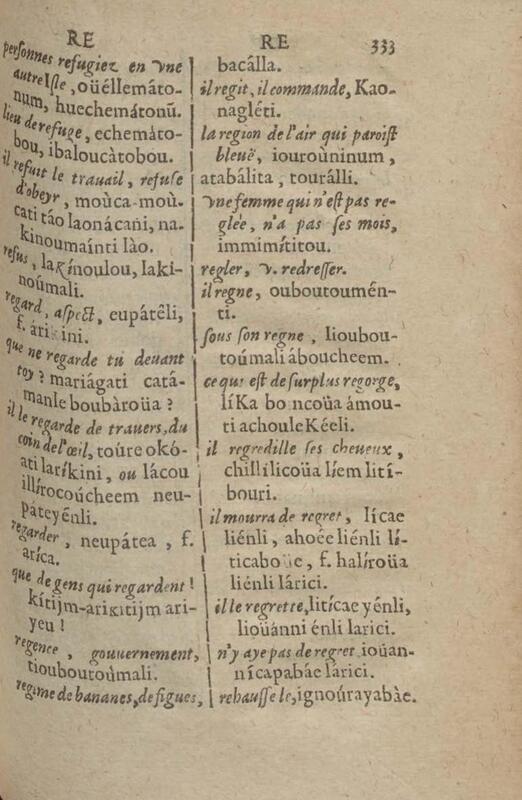 RE
personnes refugiez en vne
autre Isle, oüéllemáto-
num, huechemátonū.
lieu de refuge, echemáto-
bou, ibaloucàtobou.
il refuit le trauail, refuse
d'obeyr, moùca-moù.
cati táo laonácani, na.
kinoumaínti lào.
refus, laKínoulou, laki-
noúmali.
regard, aspect, eupátêli,
f. árikini.
que ne regarde tu deuant
toy? mariágati catá-
manle boubàroüa?
il le regarde de trauers, du
coin de l'œil, toúre okó-
ati laríkini, ou lácou
illírocoúcheem neu-
páteyénli.
regarder, neupátea, f.
aríca.
que de gens qui regardent!
kítijm-arikitijm ari-
yeu!
regence, gouuernement,
tiouboutoúmali.
regime de bananes, de figues,
RE
333
bacâlla.
il regit, il commande, Kao-
nagléti.
la region de l'air qui paroist
bleuë, iouroùninum,
atabálita, tourálli.
vne femme qui n'est pas re-
glée, n'a pas ses mois,
immimítitou.
regler, v. redresser.
il regne, ouboutoumén-
ti.
sous son regne, lioubou-
toúmali áboucheem.
ce qui est de surplus regorge,
líKa bo ncoüa ámou-
ti achoule Kéeli.
il regredille ses cheueux,
chillilicoüa líem lití-
bouri.
il mourra de regret, lícae
liénli, ahoée liénli lí-
ticabo e, f. halíroüa
liénli lárici.
il le regrette, litícae yénli,
lioüánni énli larici.
n'y aye pas de regret, ioüan-
nícapabáe lárici.
rehausse le, ignoúrayabàe.